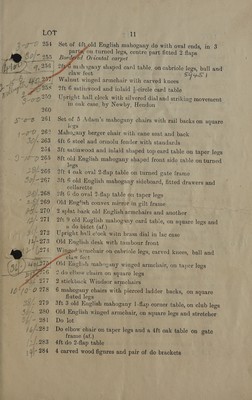 LOT 11
254 Set of 4ft old English mahogany ds with oval ends, in 3
parts on turned legs, centre part fitted 2 flaps
255 Bordered Oriental carpet
256 2ft mahogany shaped card table on cabriole legs, ball and
claw feet
257 Walnut winged armchair with carved knees
258 2ft 6 sattinwood and inlaid ½-circle card table
259 Upright hall clock with silvered dial and striking movement
in oak case by Newby, Hendon
260
261 Set of 5 Adam's mahogany chairs with rail backs on square
legs
262 Mahogany berger chair with cane seat and back
263 4ft 6 steel and ormolu fender with standards
264 3ft sattinwood and inlaid shaped top card table on taper legs
265 8ft old English mahogany shaped front side table on turned
legs
266 2ft 4 oak oval 2-flap table on turned gate frame
267 5ft 6 old English mahogany sideboard, fitted drawers and
cellarette
268 3ft 6 do oval 2-flap table on taper legs
269 Old English convex mirror in gilt frame
270 2 splat back old English armchairs and another
271 2ft 9 old English mahogany card table, on square legs and
a do toilet (af.)
272 Upright hall clock with brass dial in lac case
273 Old English desk with tambour front
Winged armchair on cabriole legs, carved knees, ball and
claw feet
Old English mahogany winged armchair, on taper legs
276 2 do elbow chairs on square legs
277 2 stickback Windsor armchairs
278 6 mahogany chairs with pierced ladder backs, on square
fluted legs
279 3ft 3 old English mahogany 1-flap corner table, on club legs
280 Old English winged armchair, on square legs and stretcher
281 Do lot
282 Do elbow chair on taper legs and a 4ft oak table on gate
frame (af.)
283 4ft do 2-flap table
284 4 carved wood figures and pair of do brackets